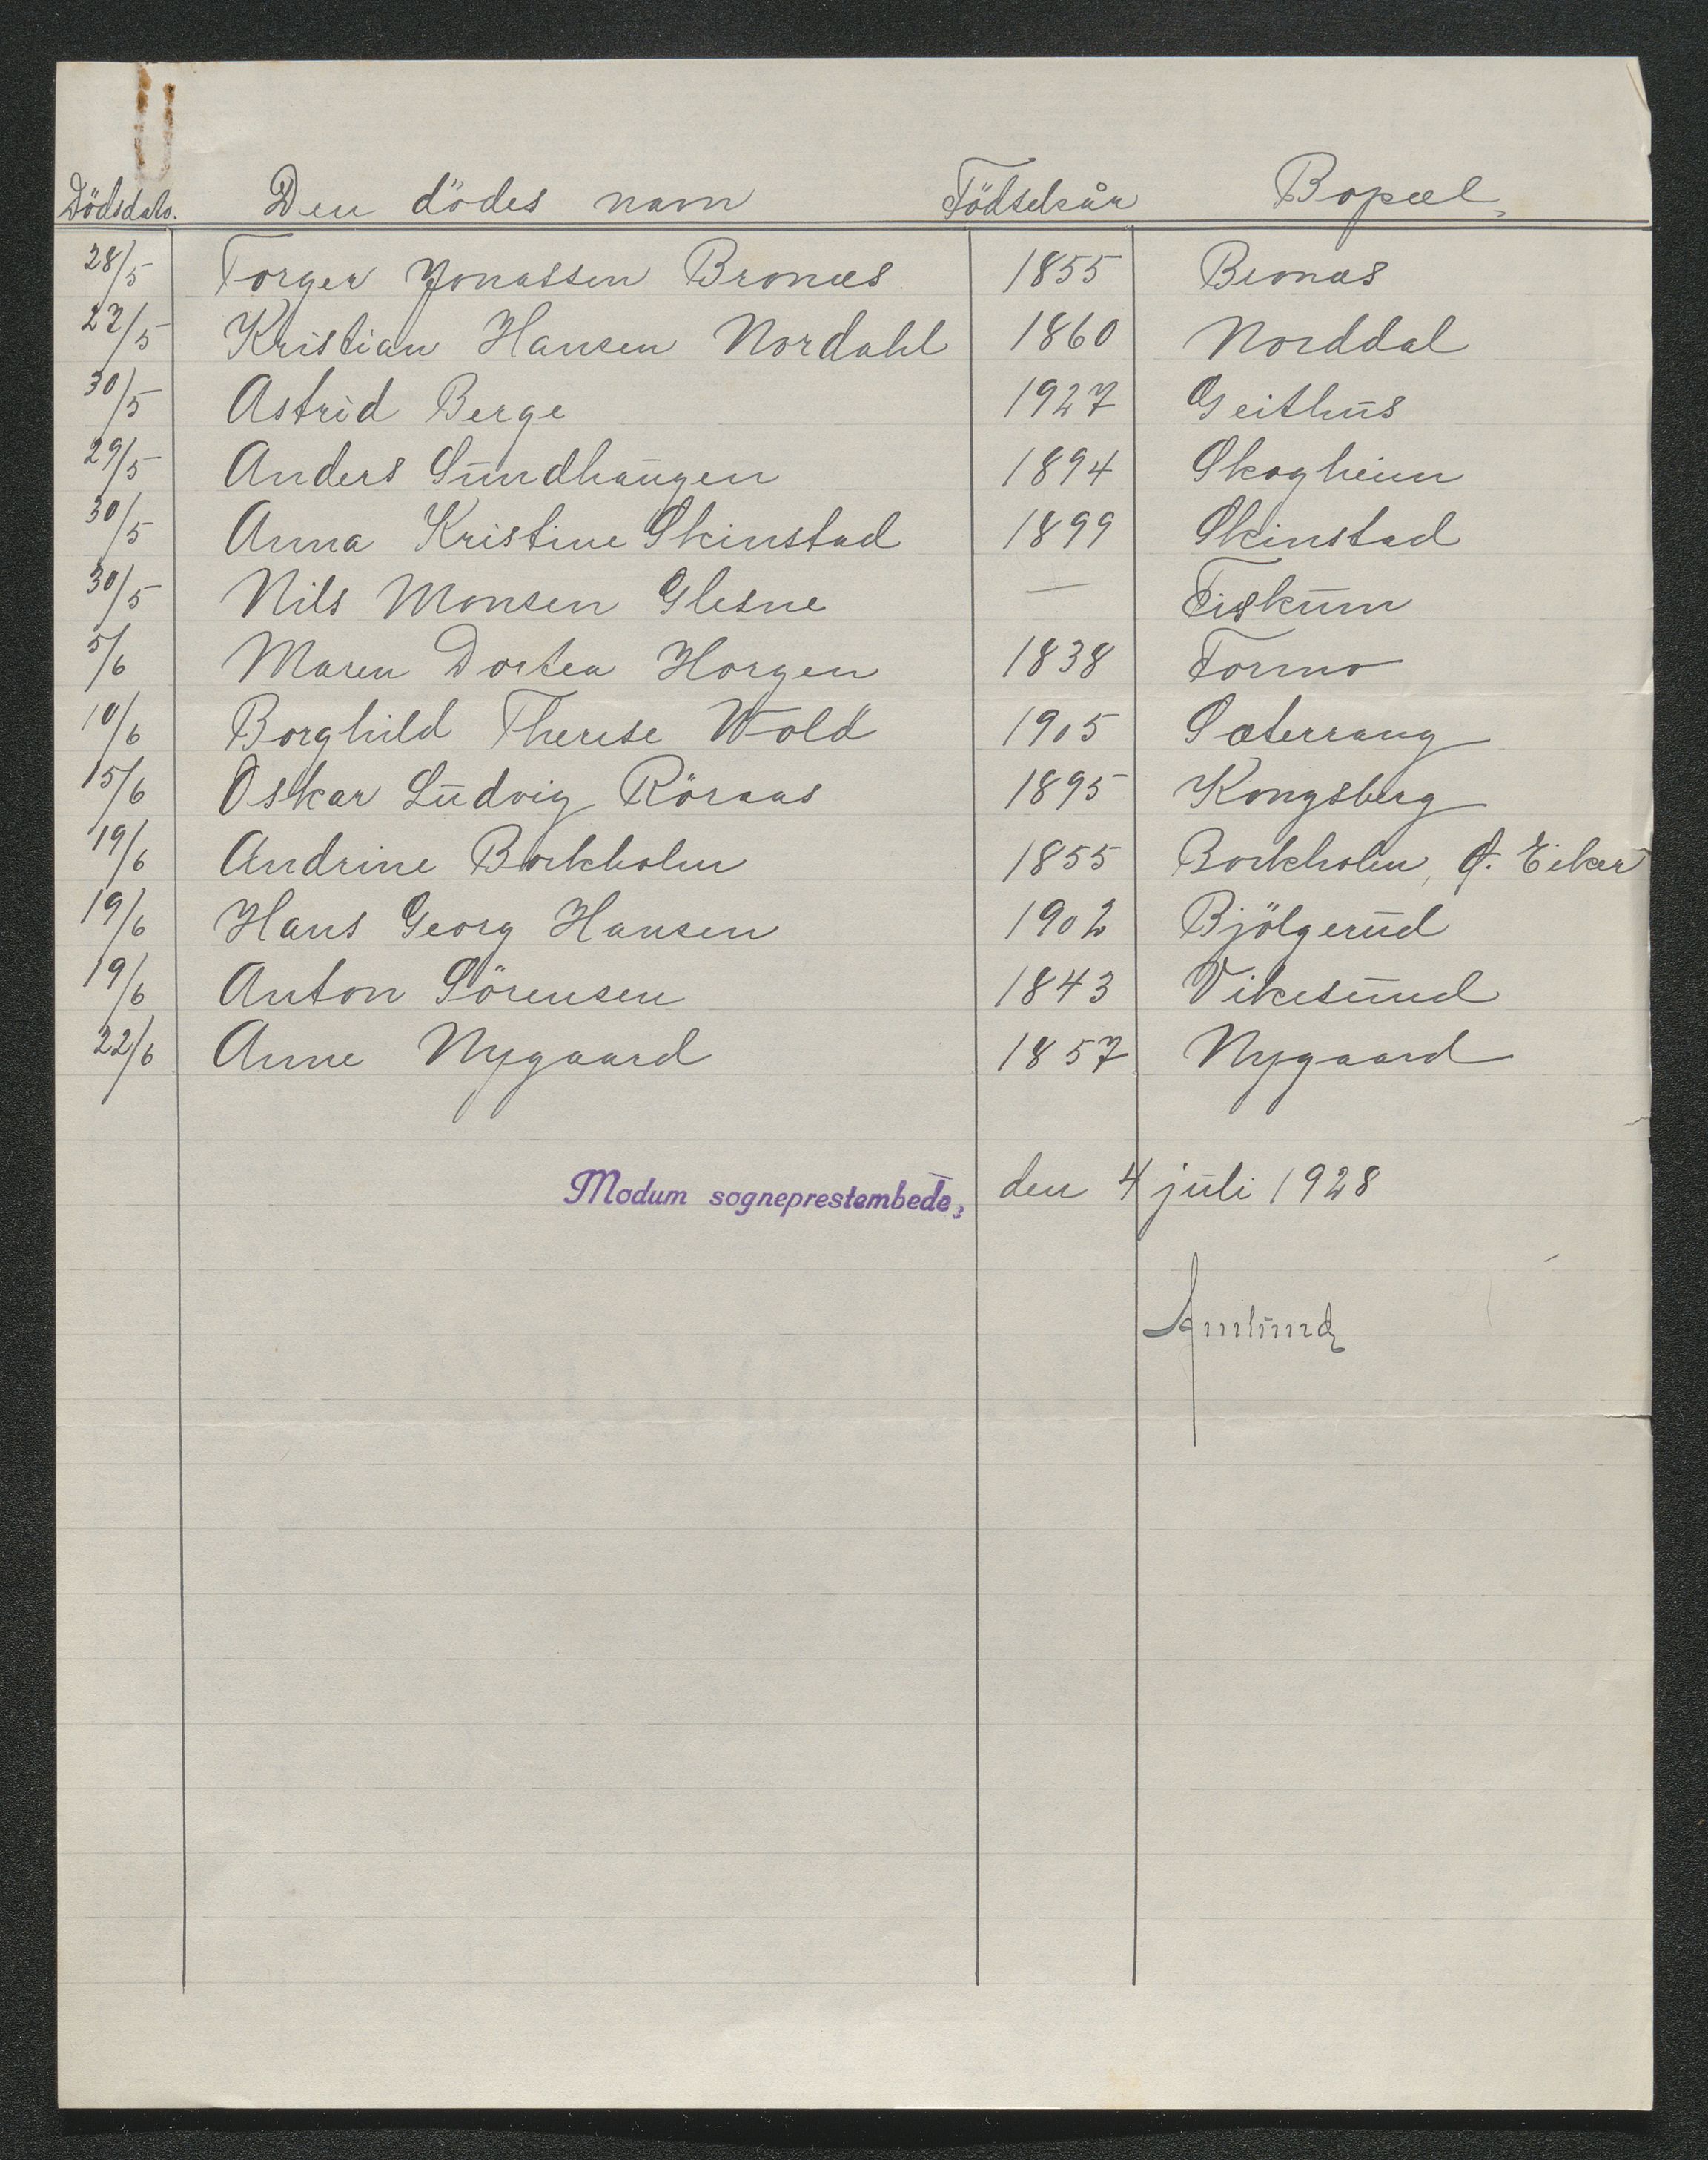 Dödsdato. Den dödes navn Födselsår Bopæl
28/5 Torger Jonassen Bronæs 1855 Bronæs
27/5 Kristian Hansen Nordahl 1860 Norddal
30/5 Astrid Berge 1927 Geithus
29/5 Anders Sundhaugen 1894 Skogheim
30/5 Anna Kristine Skinstad 1899 Skinstad
30/5 Nils Monsen Glesne — Fiskum
5/6 Maren Dortea Horgen 1838 Formo
10/6 Borghild Therese Wold 1905 Sæterrang
15/6 Oskar Ludvig Röraas 1895 Kongsberg
19/6 Andrine Borkholm 1855 Borkholm, Ø. Eiker
19/6 Hans Georg Hansen 1902 Bjölgerud
19/6 Anton Sörensen 1843 Vikesund
22/6 Anne Nygaard 1857 Nygaard
Modum sogneprestembede, den 4 juli 1928